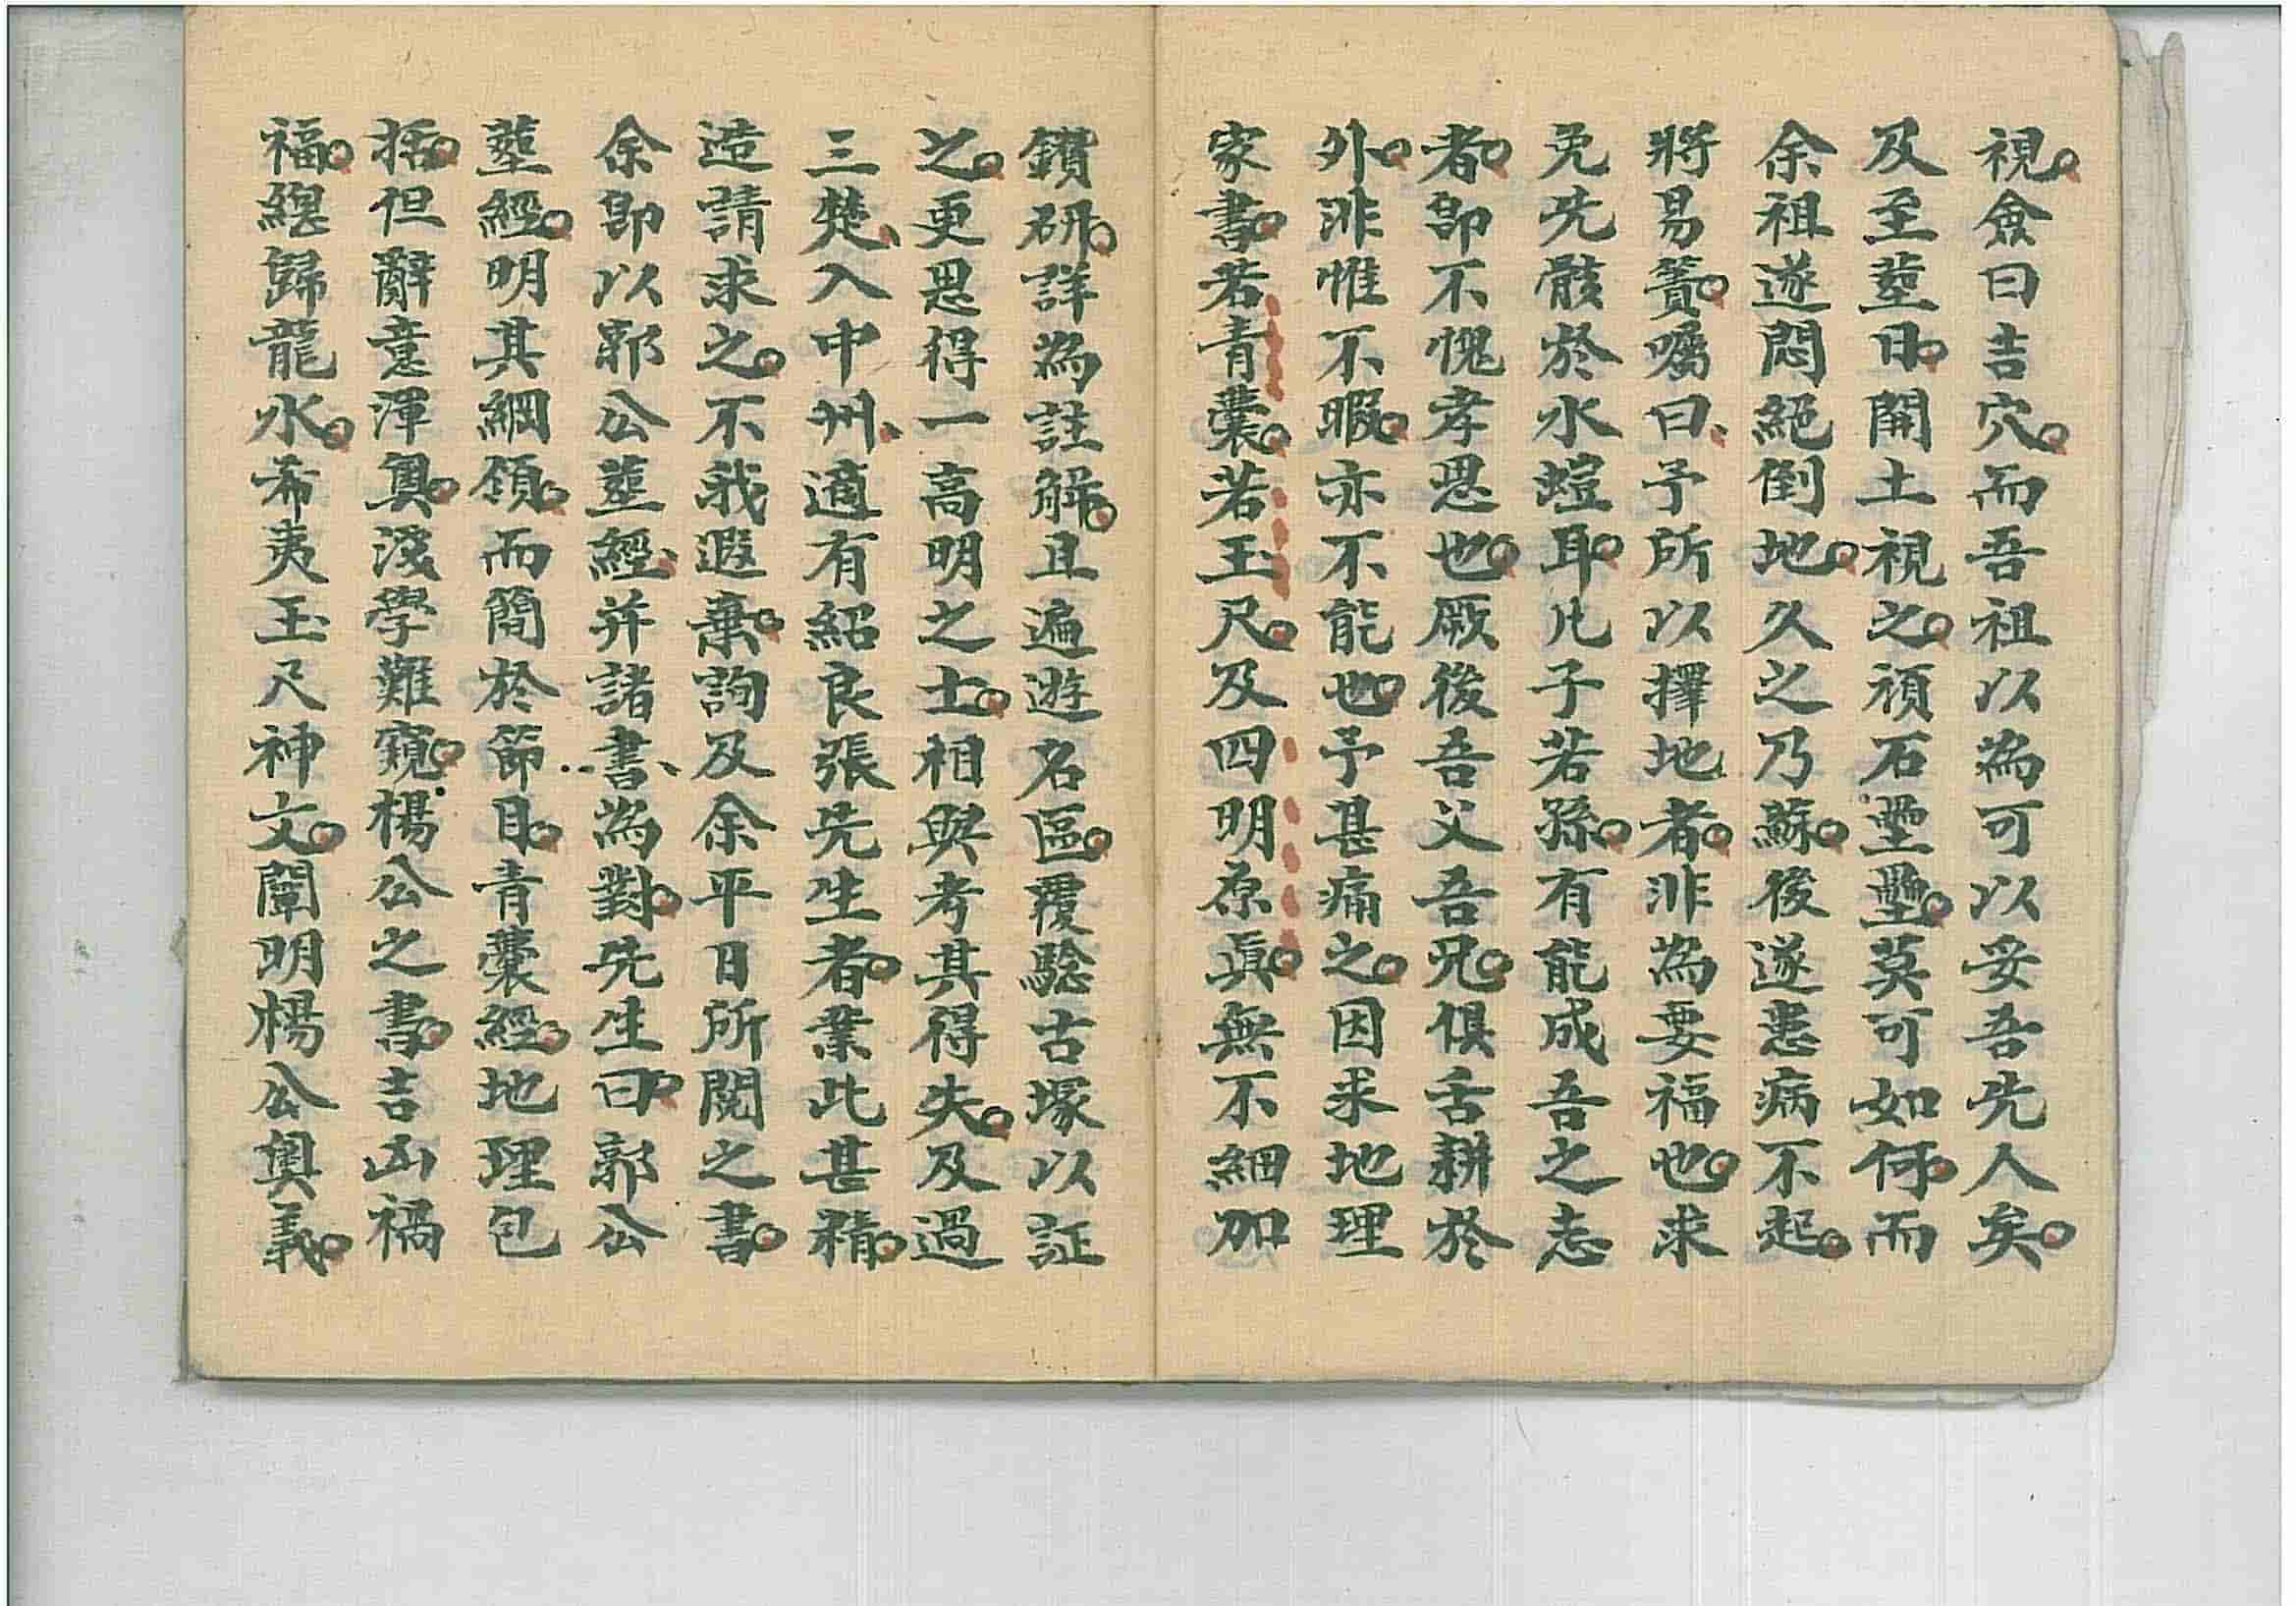 視僉曰吉穴而吾祖以為可以妥吾先人矣
及至塟日開土視之湏石壘壘莫可如何而
余祖遂悶絕倒地久之乃蘇後遂患病不起
將易簀囑曰予所以擇地者非為要福也求
免先骸於水螘耳凡子若孫有能成吾之志
者即不愧孝思也厥後吾父吾兄俱舌耕於
外非惟不暇亦不能也予甚痛之因求地理
家書若青囊若玉尺及四明原眞無不細加
鑽研詳為註解且遍遊名區覆驗古塚以証
之更思得一高明之士相與考其得失及過
三楚入中州適有紹良張先生者業此甚精
造請求之不我遐棄詢及余平日所閱之書
余即以郭公塟經并諸書為對先生曰郭公
塟經明其綱領而簡於節目青囊經地理包
括但辭意渾奧淺學難窺楊公之書吉凶禍
福緫歸龍水希夷玉尺神文闡明楊公奧義